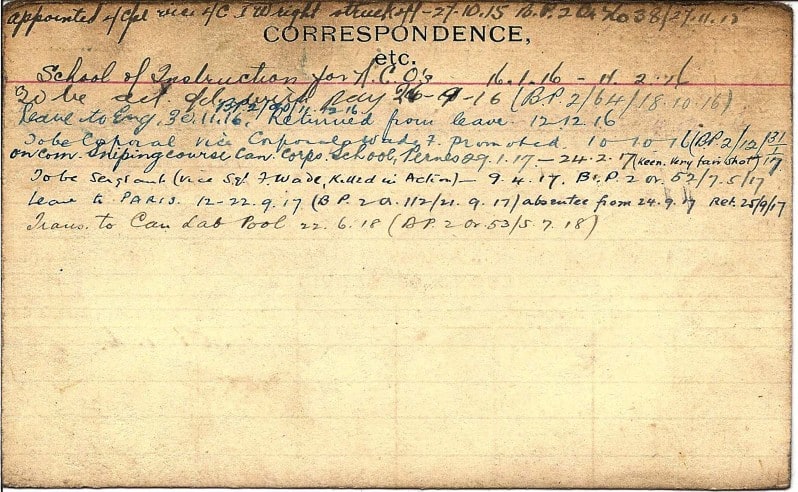 appointed i/Cpl vice i/C I Wright struck off -27.10.15 B.P.2 Or No 38/27.11.15
CORRESPONDENCE,
etc.
School of Instruction for N.C.O's 16.1.16 - 11.2.16
To be act. Cpl with pay 26-9-16 (B.P.2/64/18.10.16)
Leave to Eng. 30.11.16. Returned from leave. 12.12.16
To be Corporal vice Corporal Wade, F. promoted. 10-10-16 (B.P.2/12/31/1/17
on com. Sniping course Can. Corps. School, Pernes 29.1.17 - 24.2.17 (Keen. Very fair shot)
To be Sergeant (vice Sgt F. Wade, Killed in Action) - 9.4.17. B.P.2 or. 52/7.5/17
Leave to PARIS. 12-22.9.17 (B.P.2 o. 112/21.9.17) absentee from 24.9.17 Ret. 25/9/17
Trans. to Can Lab Pool 22.6.18 (B.P.2 or 53/5.7.18)